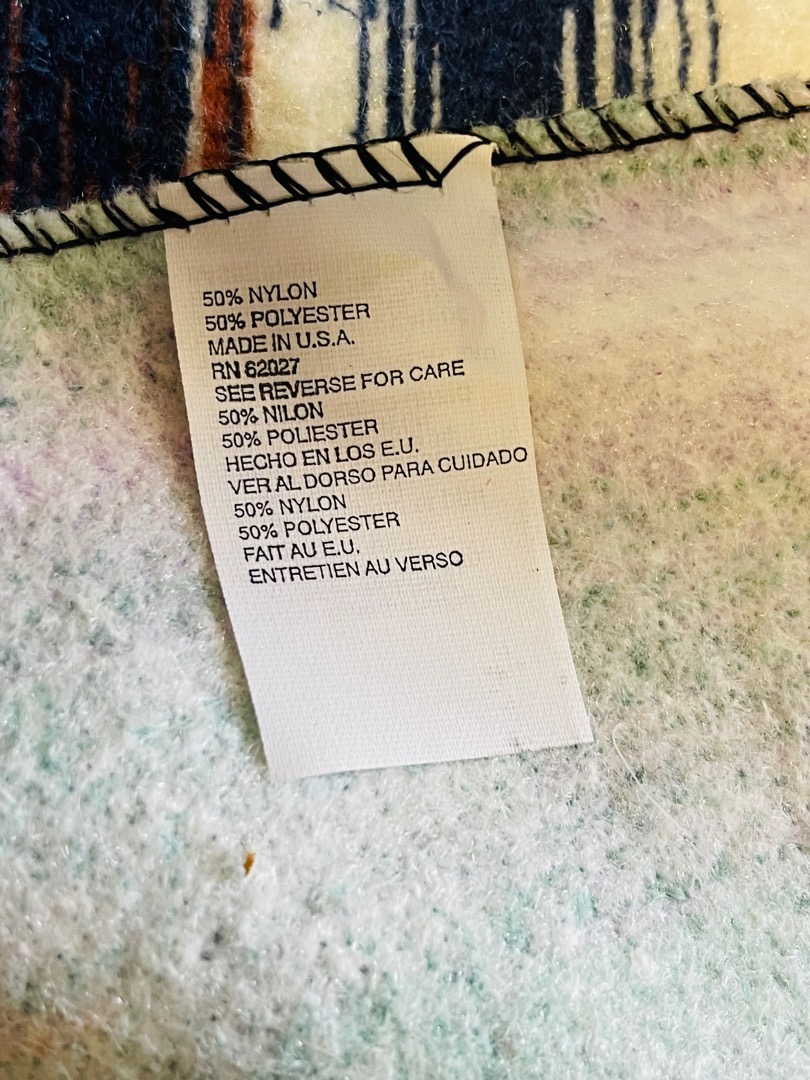 50% NYLON
50% POLYESTER
MADE IN U.S.A.
RN 62027
SEE REVERSE FOR CARE
50% NILON
50% POLIESTER
HECHO EN LOS E.U.
VER AL DORSO PARA CUIDADO
50% NYLON
50% POLYESTER
FAIT AU E.U.
ENTRETIEN AU VERSO